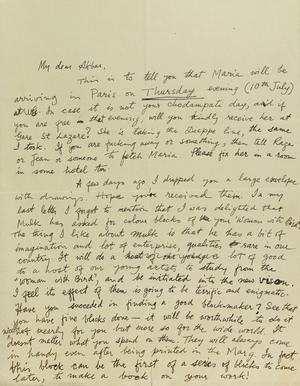 My dear Akbar,
This is to tell you that Maria will be
arriving in Paris on Thursday evening (10th July)
In case it is not your chodampate day, and if
you are free that evening, will you kindly receive her at
Gare St Lazare? She is taking the Dieppe line, the same
I took. If you are fucking away or something, then tell Raza
or Jean or someone to fetch Maria. Please fix her in a room
in some hotel too.
A few days ago I dropped you a large envelope
with drawings. Hope you received them. In my
last letter I forgot to mention that I was delighted that
Mulk has asked for colour blocks of the your 'Woman with Bird'.
The thing I like about Mulk is that he has a bit of
imagination and lot of enterprise, qualities rare in our
country. It will do a lot of good
to a host of our young artists to study from the
'woman with Bird', and be initiated into the new vision.
I feel its effect of them is going to be terrific and enigmatic.
Have you succeeded in finding a good blockmaker? See that
you have fine blocks done — it will be worthwhile to do it
not merely for you but more so for the wide world. It
doesnt matter what you spend on them. They will always come
in handy even after being printed in the Marg. In fact
this block can be the first of a series of blocks to come
later, to make a book on your work!